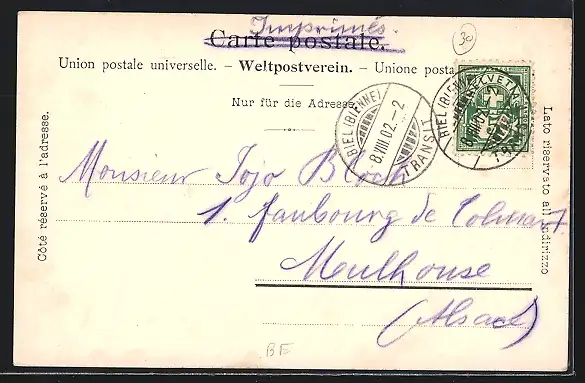 Imprimés.
Carte postale.
30
Union postale universelle. – Weltpostverein. – Unione posta
Nur für die Adresse.
BIEL (BIENNE)
8.VIII.02.–2
TRANSIT
BIEL (BIENNE)
8.VIII.02.–2
TRANSIT
Côté réservé à l'adresse.
Lato riservato all'indirizzo
Monsieur Jojo Bloch
1. faubourg de Colmar.
Mulhouse
(Alsace)
BE